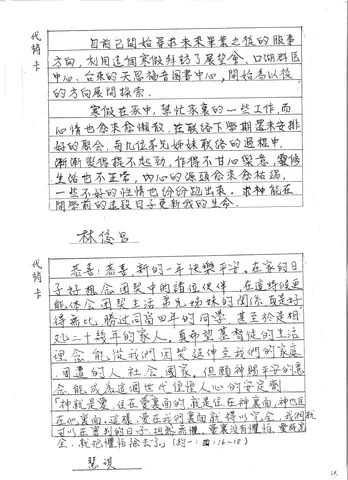 代禱卡
目前已開始尋求未來畢業之後的服事
方向，利用這個寒假拜訪了展望會、口湖群區
中心、台東的天恩福音圖書中心，開始為以後
的方向展開探索。
寒假在家中，幫忙家裏的一些工作，而
心情也愈來愈懶散，在聯絡下學期還未安排
好的聚會，每几位弟兄姊妹聯絡的過程中，
漸漸覺得提不起勁，作得不甘心樂意，靈修
生活也不正常，內心的源頭愈來愈枯竭，
一些不好的性情也紛紛跑出來。求神能在
開學前的這段日子更新我的生命。
林俊昌
代禱卡
恭喜！恭喜！新的一年快樂平安。在家的日
子好想念團契中的諸位伙伴，在這時候更
能体会團契生活弟兄姊妹的関係，真是好
得無比，勝过同窗四年的同学，甚至於是相
処二十幾年的家人，真希望基督徒的生活
理念能從我們團契延伸至我們的家庭
周遭的人社会國家，但願神賜平安的意
念能成為這個世代惶惶人心的安定劑
「神就是愛，住在愛裏面的，就是住在神裏面，神也住
在他裏面。這樣，愛在我們裏面就得以完全，我們就
可以在審判的日子，坦然無懼。愛裏沒有懼怕，愛既完
全，就把懼怕除去了。」（約一：四：16～18）
慧琪